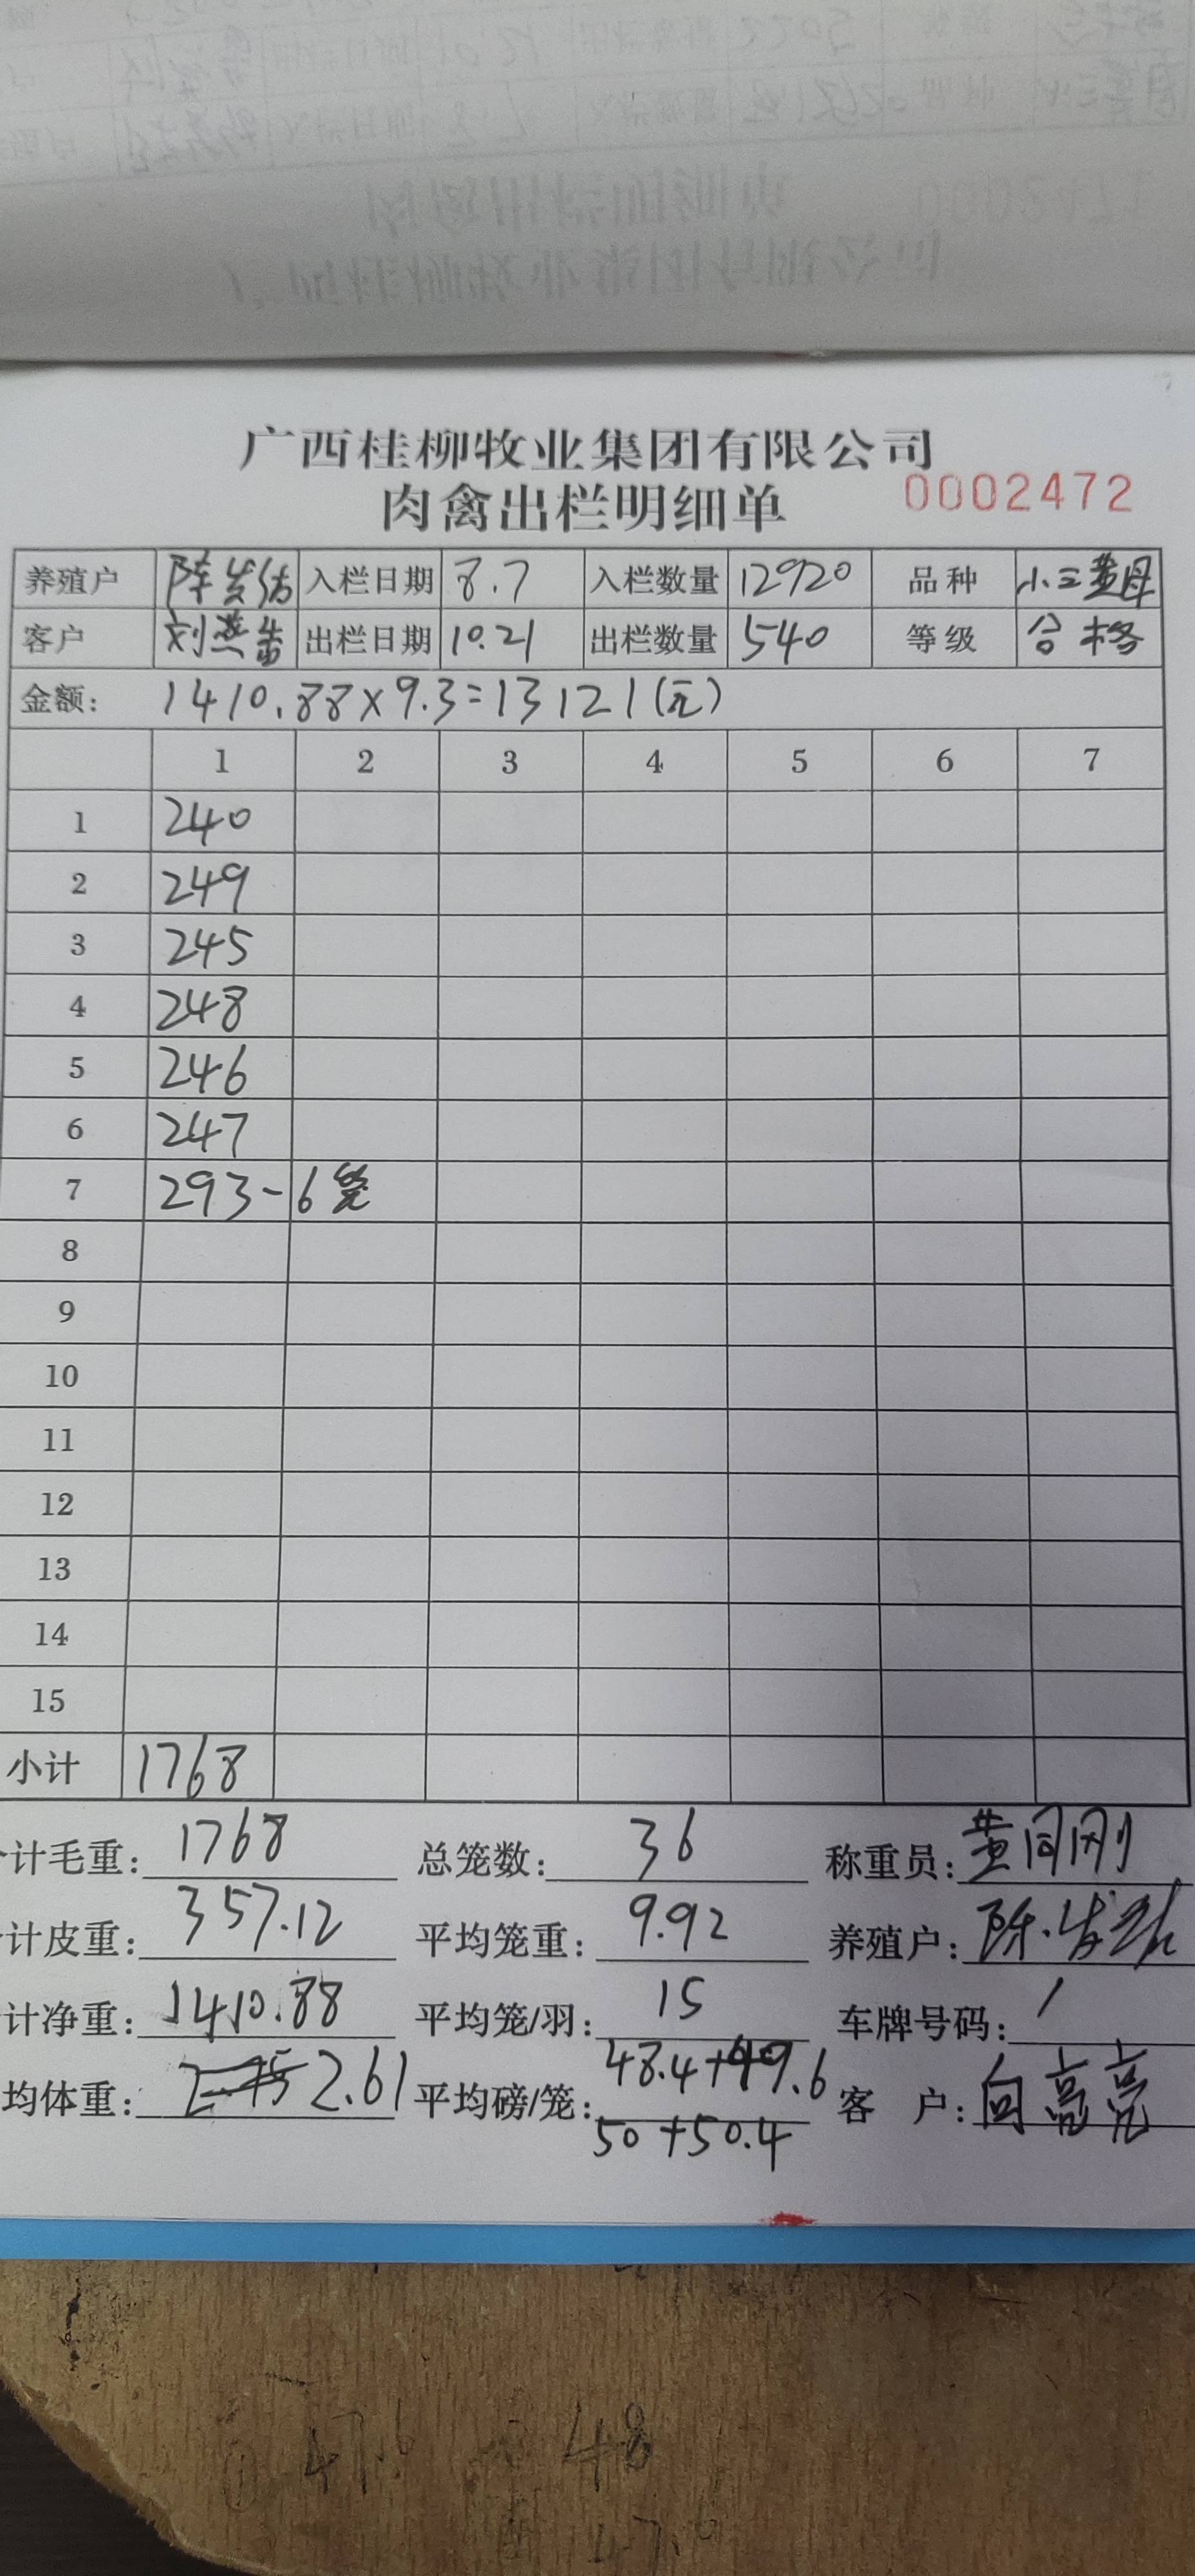 广西桂柳牧业集团有限公司
肉禽出栏明细单 0002472
养殖户 陈发 入栏日期 8.7 入栏数量 12920 品种 小三黄母
客户 刘燕 出栏日期 10.21 出栏数量 540 等级 合格
金额: 1410.88×9.3=13121(元)
1 2 3 4 5 6 7
1 240
2 249
3 245
4 248
5 246
6 247
7 293-6笼
8
9
10
11
12
13
14
15
小计 1768
计毛重: 1768 总笼数: 36 称重员: 黄同刚
计皮重: 357.12 平均笼重: 9.92 养殖户: 陈发
计净重: 1410.88 平均笼/羽: 15 车牌号码: /
均体重: 2.61 平均磅/笼: 48.4+49.6 客 户: 向亮亮
50+50.4
47.6 48
47.6